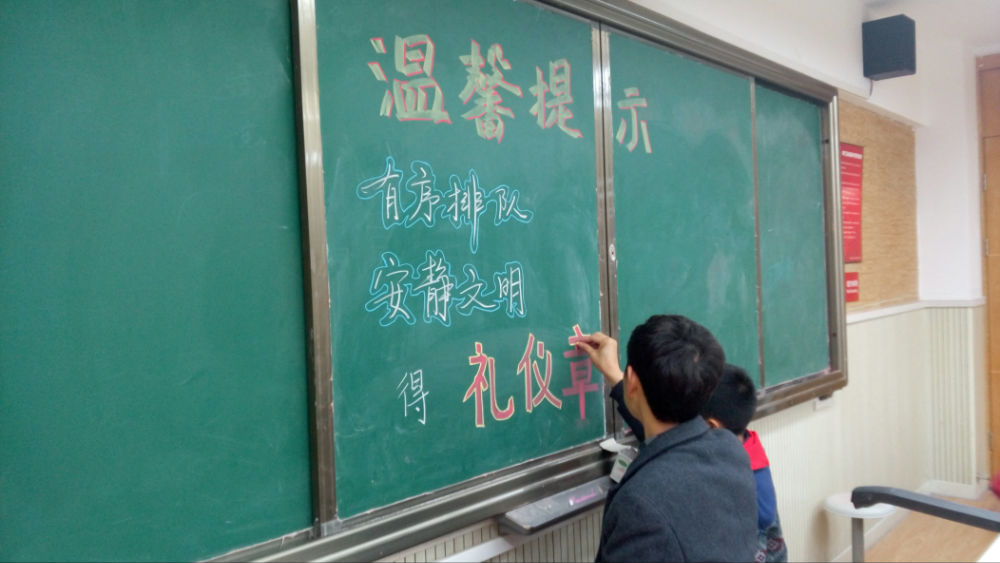 温馨提示
有序排队
安静文明
得礼仪章